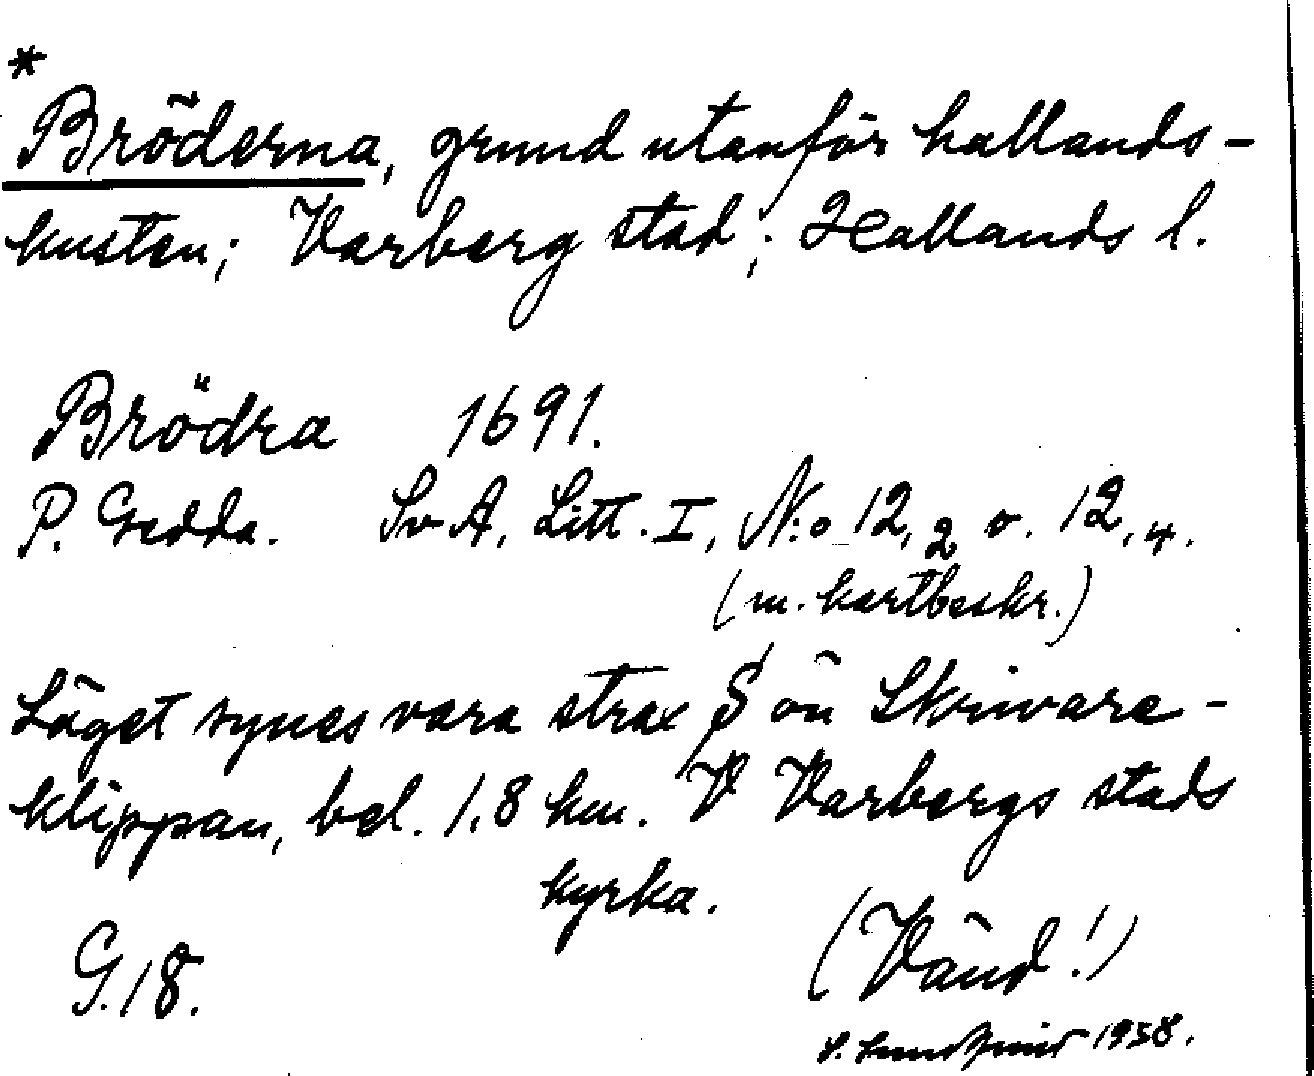 *
Bröderna, grund utanför hallands-
kusten; Varberg stad; Hallands l.
Brödra 1691.
P. Gedda. SvA, Litt. I, N:o 12,2 o. 12,4.
(m. kartbeskr.)
Läget synes vara strax S ön Skrivare-
klippan, bel. 1,8 km. V Varbergs stads
kyrka.
G.18.
(Vänd!)
1958.